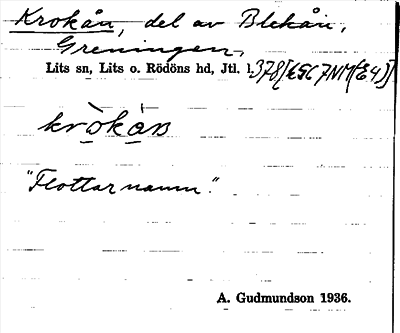 Krokån, del av Blekån,
Greningen,
Lits sn, Lits o. Rödöns hd, Jtl. l.
kròkån
"Flottarnamn".
A. Gudmundson 1936.